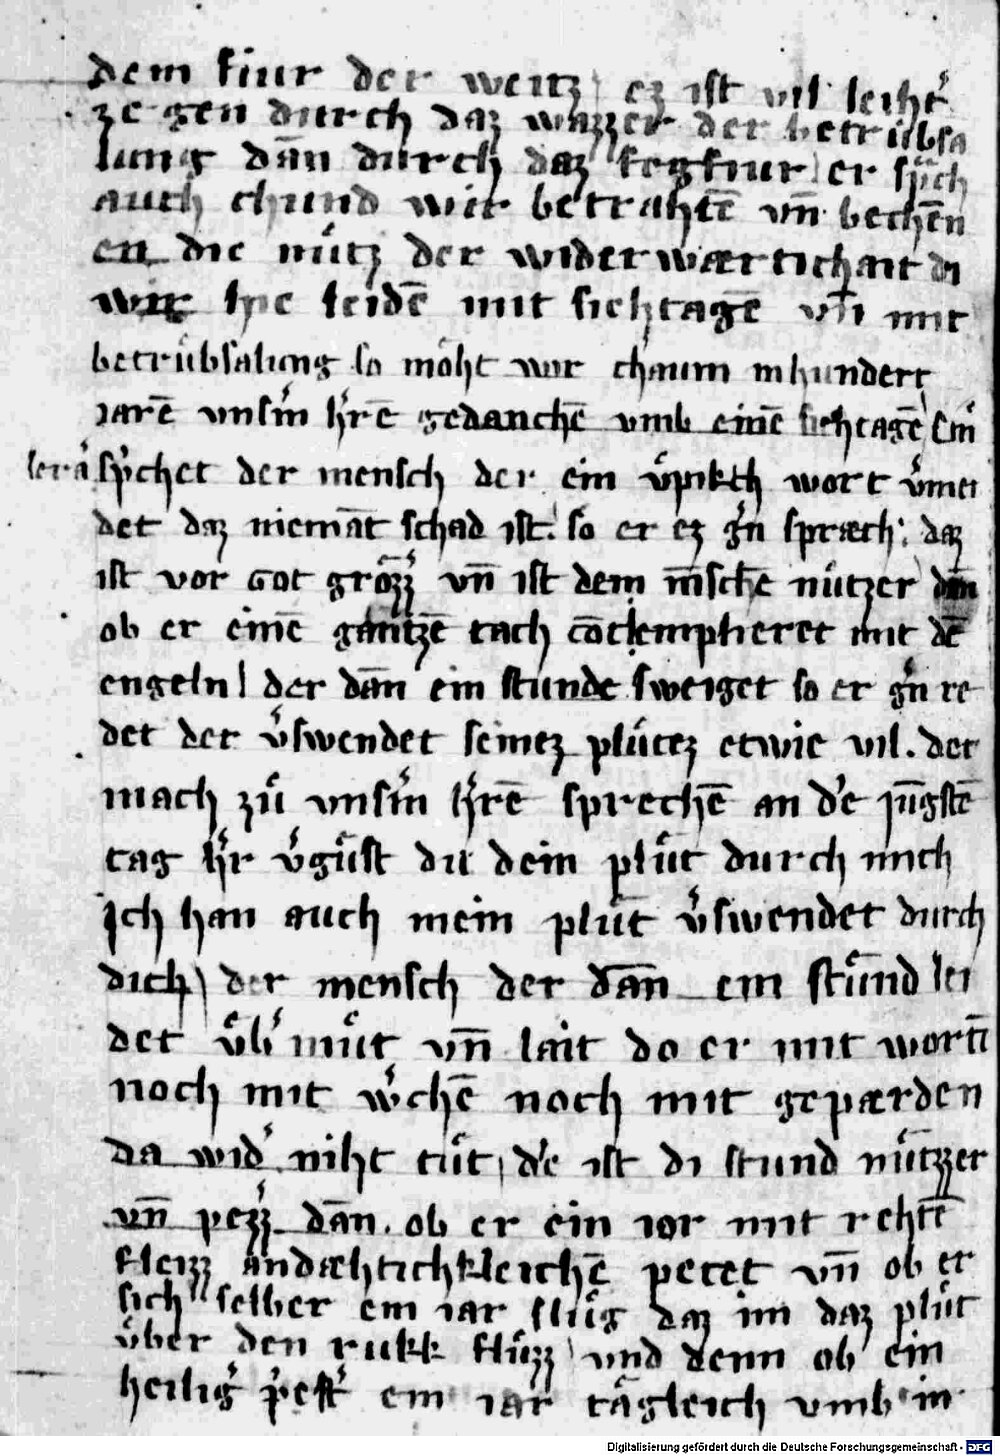 dem fiur der weitz ez ist vil leiht᷑
ze gen durch daz wazzer der betrübsa
lung dān durch daz fegfiur er sp᷑ch
auch chund wir betrahtē vn̄ bechēn
en die nütz der widerwærtichait di
wir hie leidē mit siehtagē vn̄ mit
betrübsalung so möht wir chaum in hundert
iarē vnsm̄ h᷑rē gedanchē vmb einē siehtagē
sp᷑chet der mensch der ein v᷑pikch wort v᷑mei
det daz niemāt schad ist. so er ez g᷑n spræch: daz
ist vor got grözz᷑ vn̄ ist dem m̄schē nützer dān
ob er einē gantzē tach cōtempliret mit dē
engeln der dān ein stunde sweiget so er g᷑n re
det der v᷑swendet seinez plütez etwie vil. der
mach zü vnsm̄ h᷑rē sprechē an d᷑e jūgstē
tag h᷑r v᷑güst du dein plüt durch mich
Ich han auch mein plüt v᷑swendet durch
dich der mensch der dān ein stünd lei
det üb᷑ müt vn̄ lait do er mit wortn̄
noch mit w᷑chē noch mit gepærden
da wid᷑ niht tüt, d᷑e ist di stund nützzer
vn̄ pezz᷑ dān. ob er ein ior mit rehtē
fleizz andæhtichkleichē petet vn̄ ob er
sich selber ein iar slüg daz im daz plüt
über den rukk flüzz und denn ob ein
heilig᷑ p᷑est᷑ ein iar tägleich vmb in
Digitalisierung gefördert durch die Deutsche Forschungsgemeinschaft - DFG